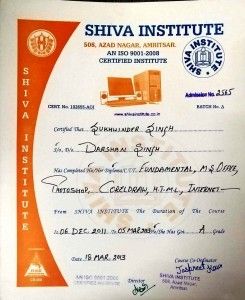 SHIVA INSTITUTE
508, AZAD NAGAR, AMRITSAR.
AN ISO 9001-2008
CERTIFIED INSTITUTE
SHIVA INSTITUTE
SHIVA INSTITUTE
Admission No. 2565
CERT. NO. 102695-A01
www.shivainstitute.co.in
BATCH No. A
Certified That Sukhwinder Singh
S/o, D/o Darshan Singh
Has Completed His/Her Diploma/CTT. Fundamental, M.S Office,
Photoshop, Coreldraw, H.T.M.L, Internet
From SHIVA INSTITUTE The Duration of the Course
is 06 Dec. 2011 To 05 Mar 2013 He/She Has Got A Grade
Date 18 Mar. 2013
Course Co-Ordinator
Director
AN ISO 9001-2008
CERTIFIED INSTITUTE
SHIVA INSTITUTE
508, Azad Nagar,
Amritsar.